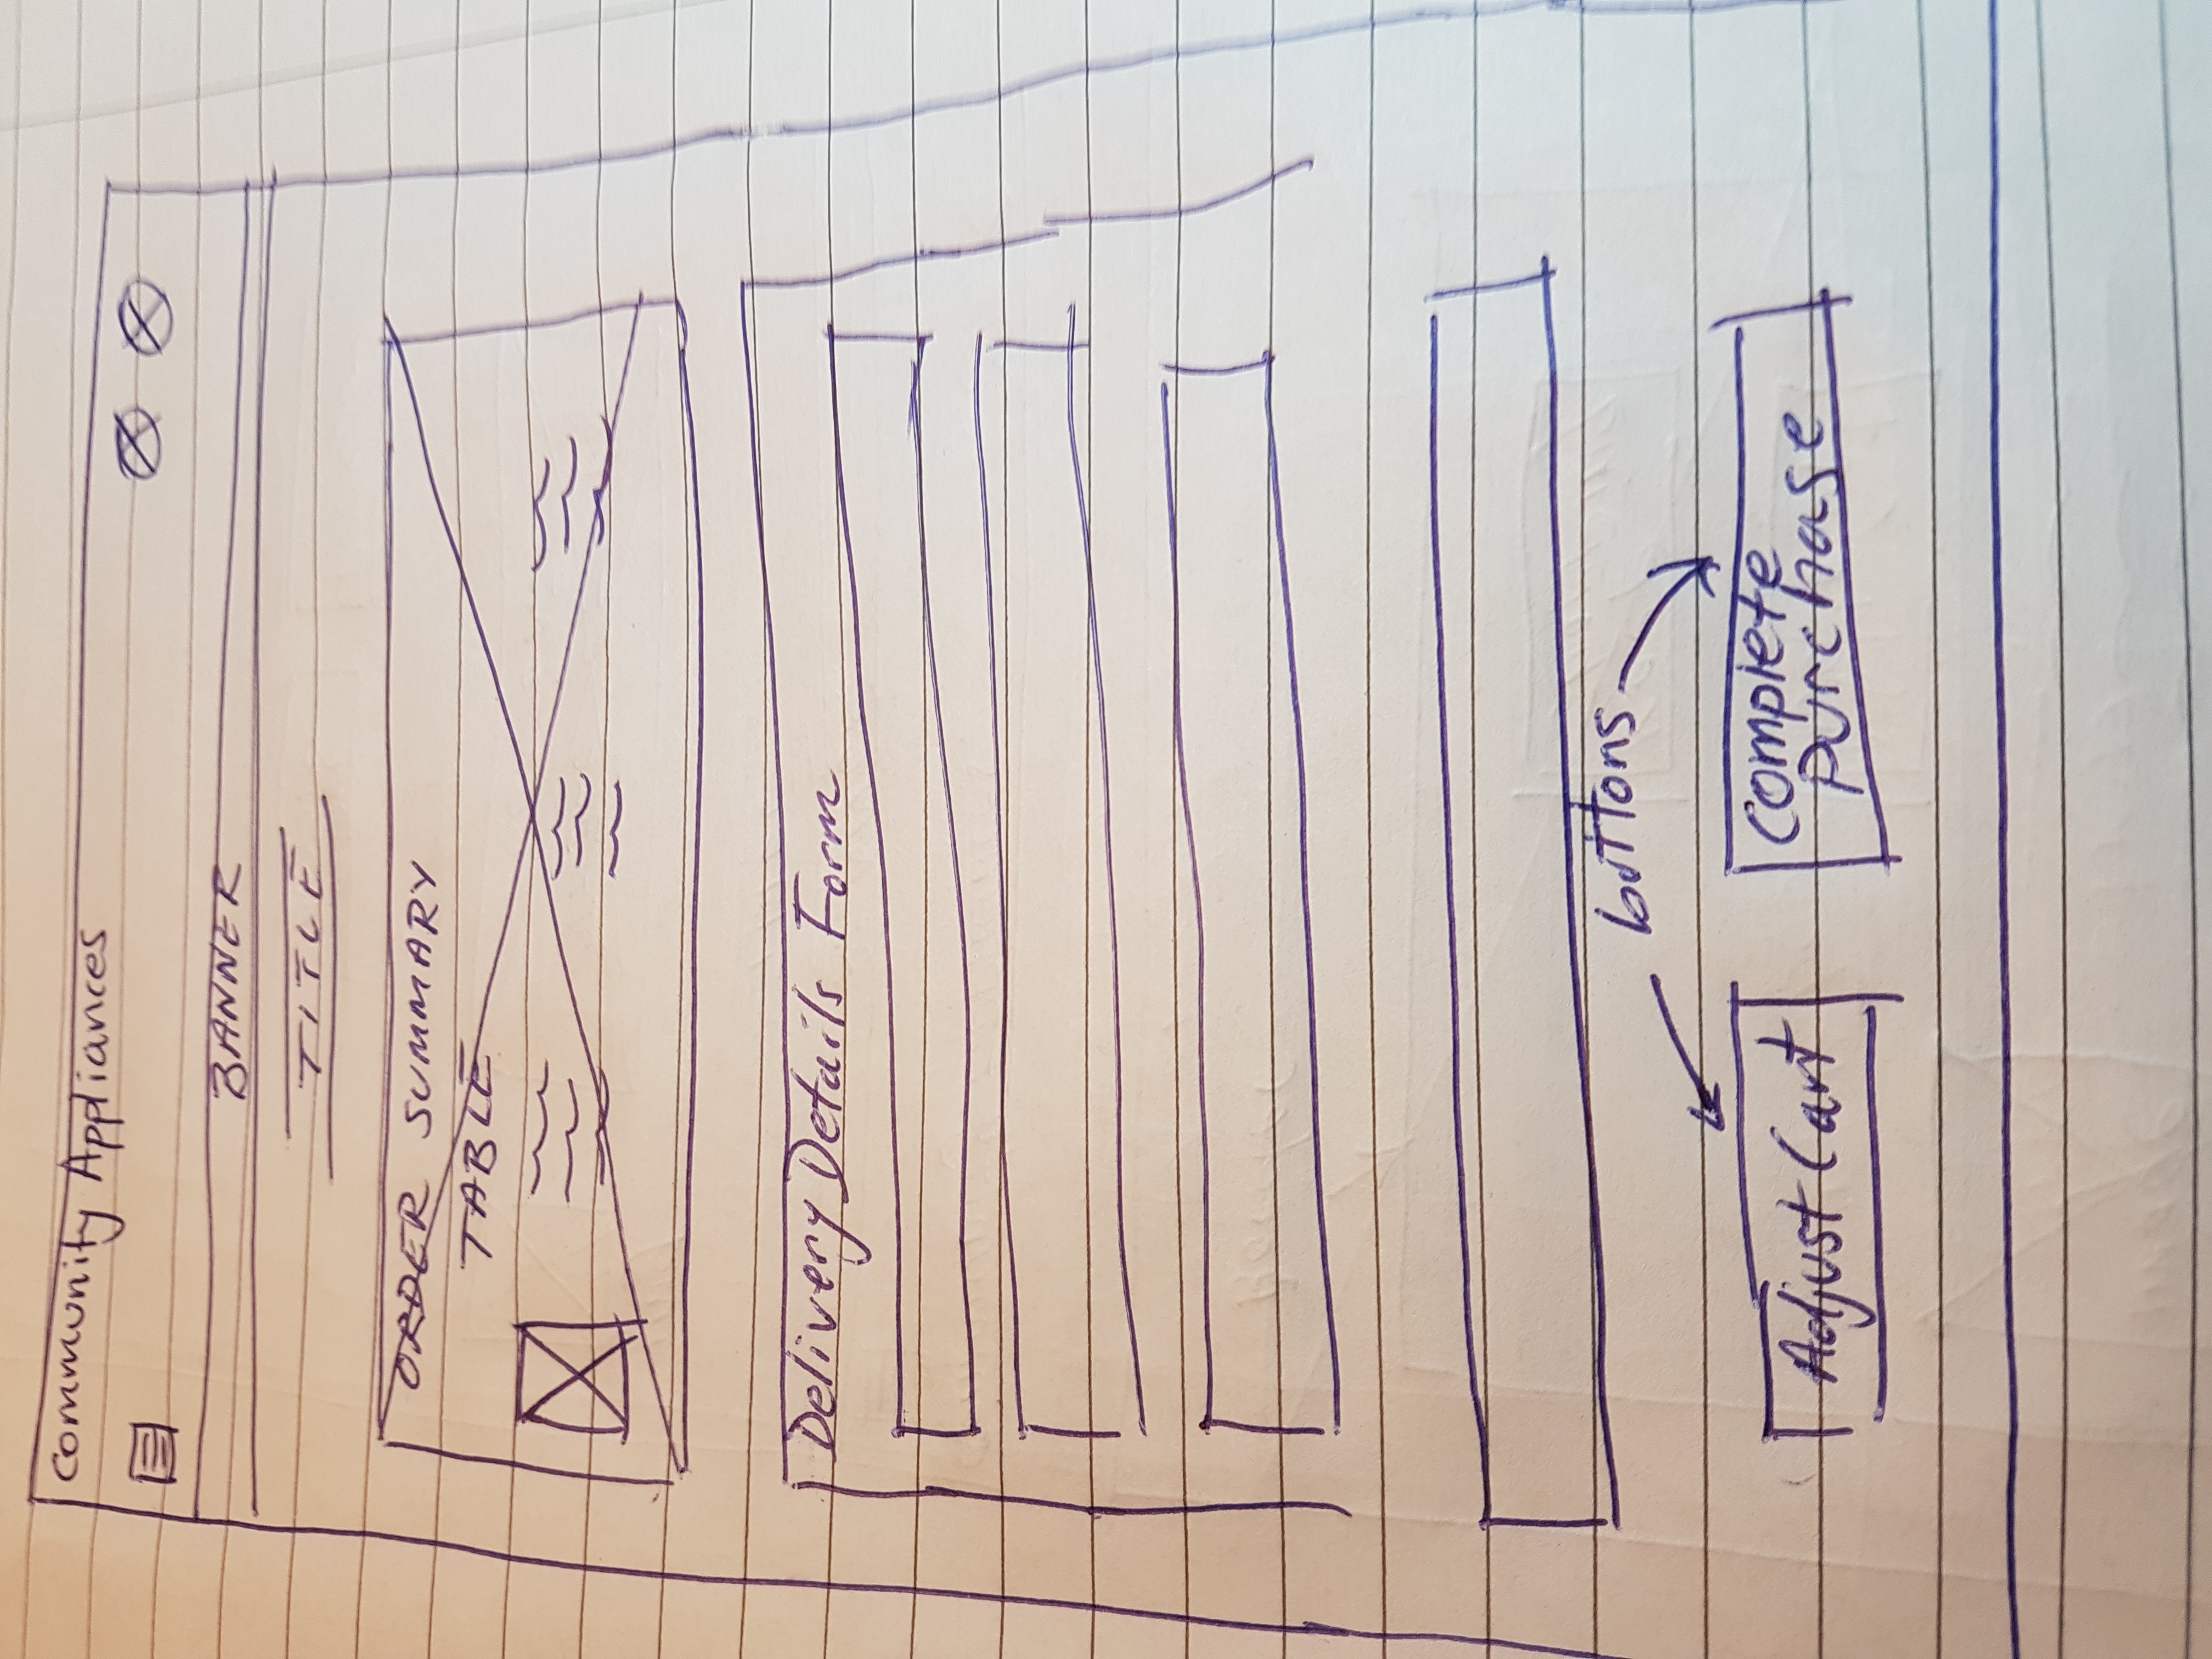 Community Appliances
BANNER
TITLE
ORDER SUMMARY
TABLE
Delivery Details Form
buttons
Adjust Cart
Complete
Purchase